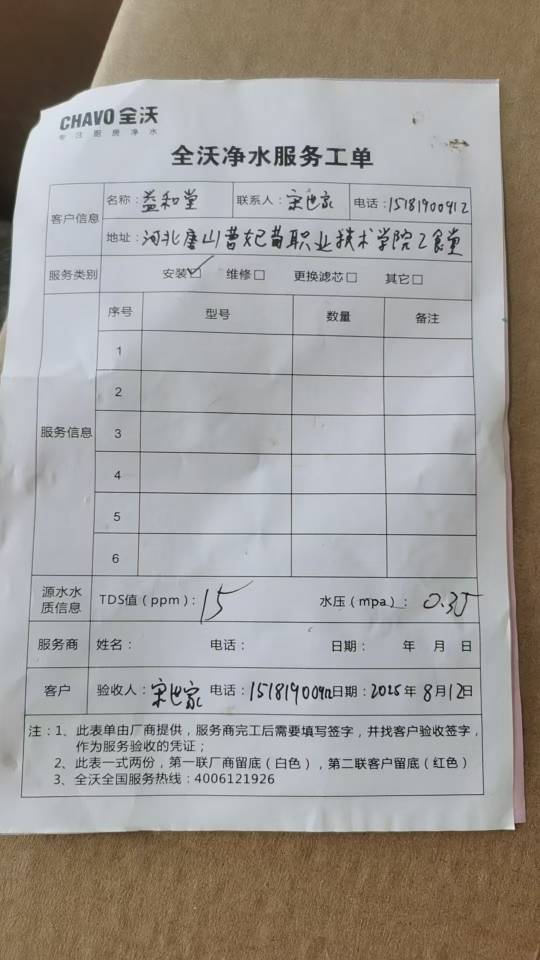 CHAVO 全沃
专注厨房净水
全沃净水服务工单
客户信息 名称：益和堂 联系人：宋世家 电话：15181900912
地址：河北唐山曹妃甸职业技术学院2食堂
服务类别 安装☑ 维修□ 更换滤芯□ 其它□
服务信息 序号 型号 数量 备注
1
2
3
4
5
6
源水水质信息 TDS值（ppm）：15 水压（mpa）：0.35
服务商 姓名： 电话： 日期： 年 月 日
客户 验收人：宋世家 电话：15181900912 日期：2025年8月12日
注：1、此表单由厂商提供，服务商完工后需要填写签字，并找客户验收签字，
作为服务验收的凭证；
2、此表一式两份，第一联厂商留底（白色），第二联客户留底（红色）
3、全沃全国服务热线：4006121926